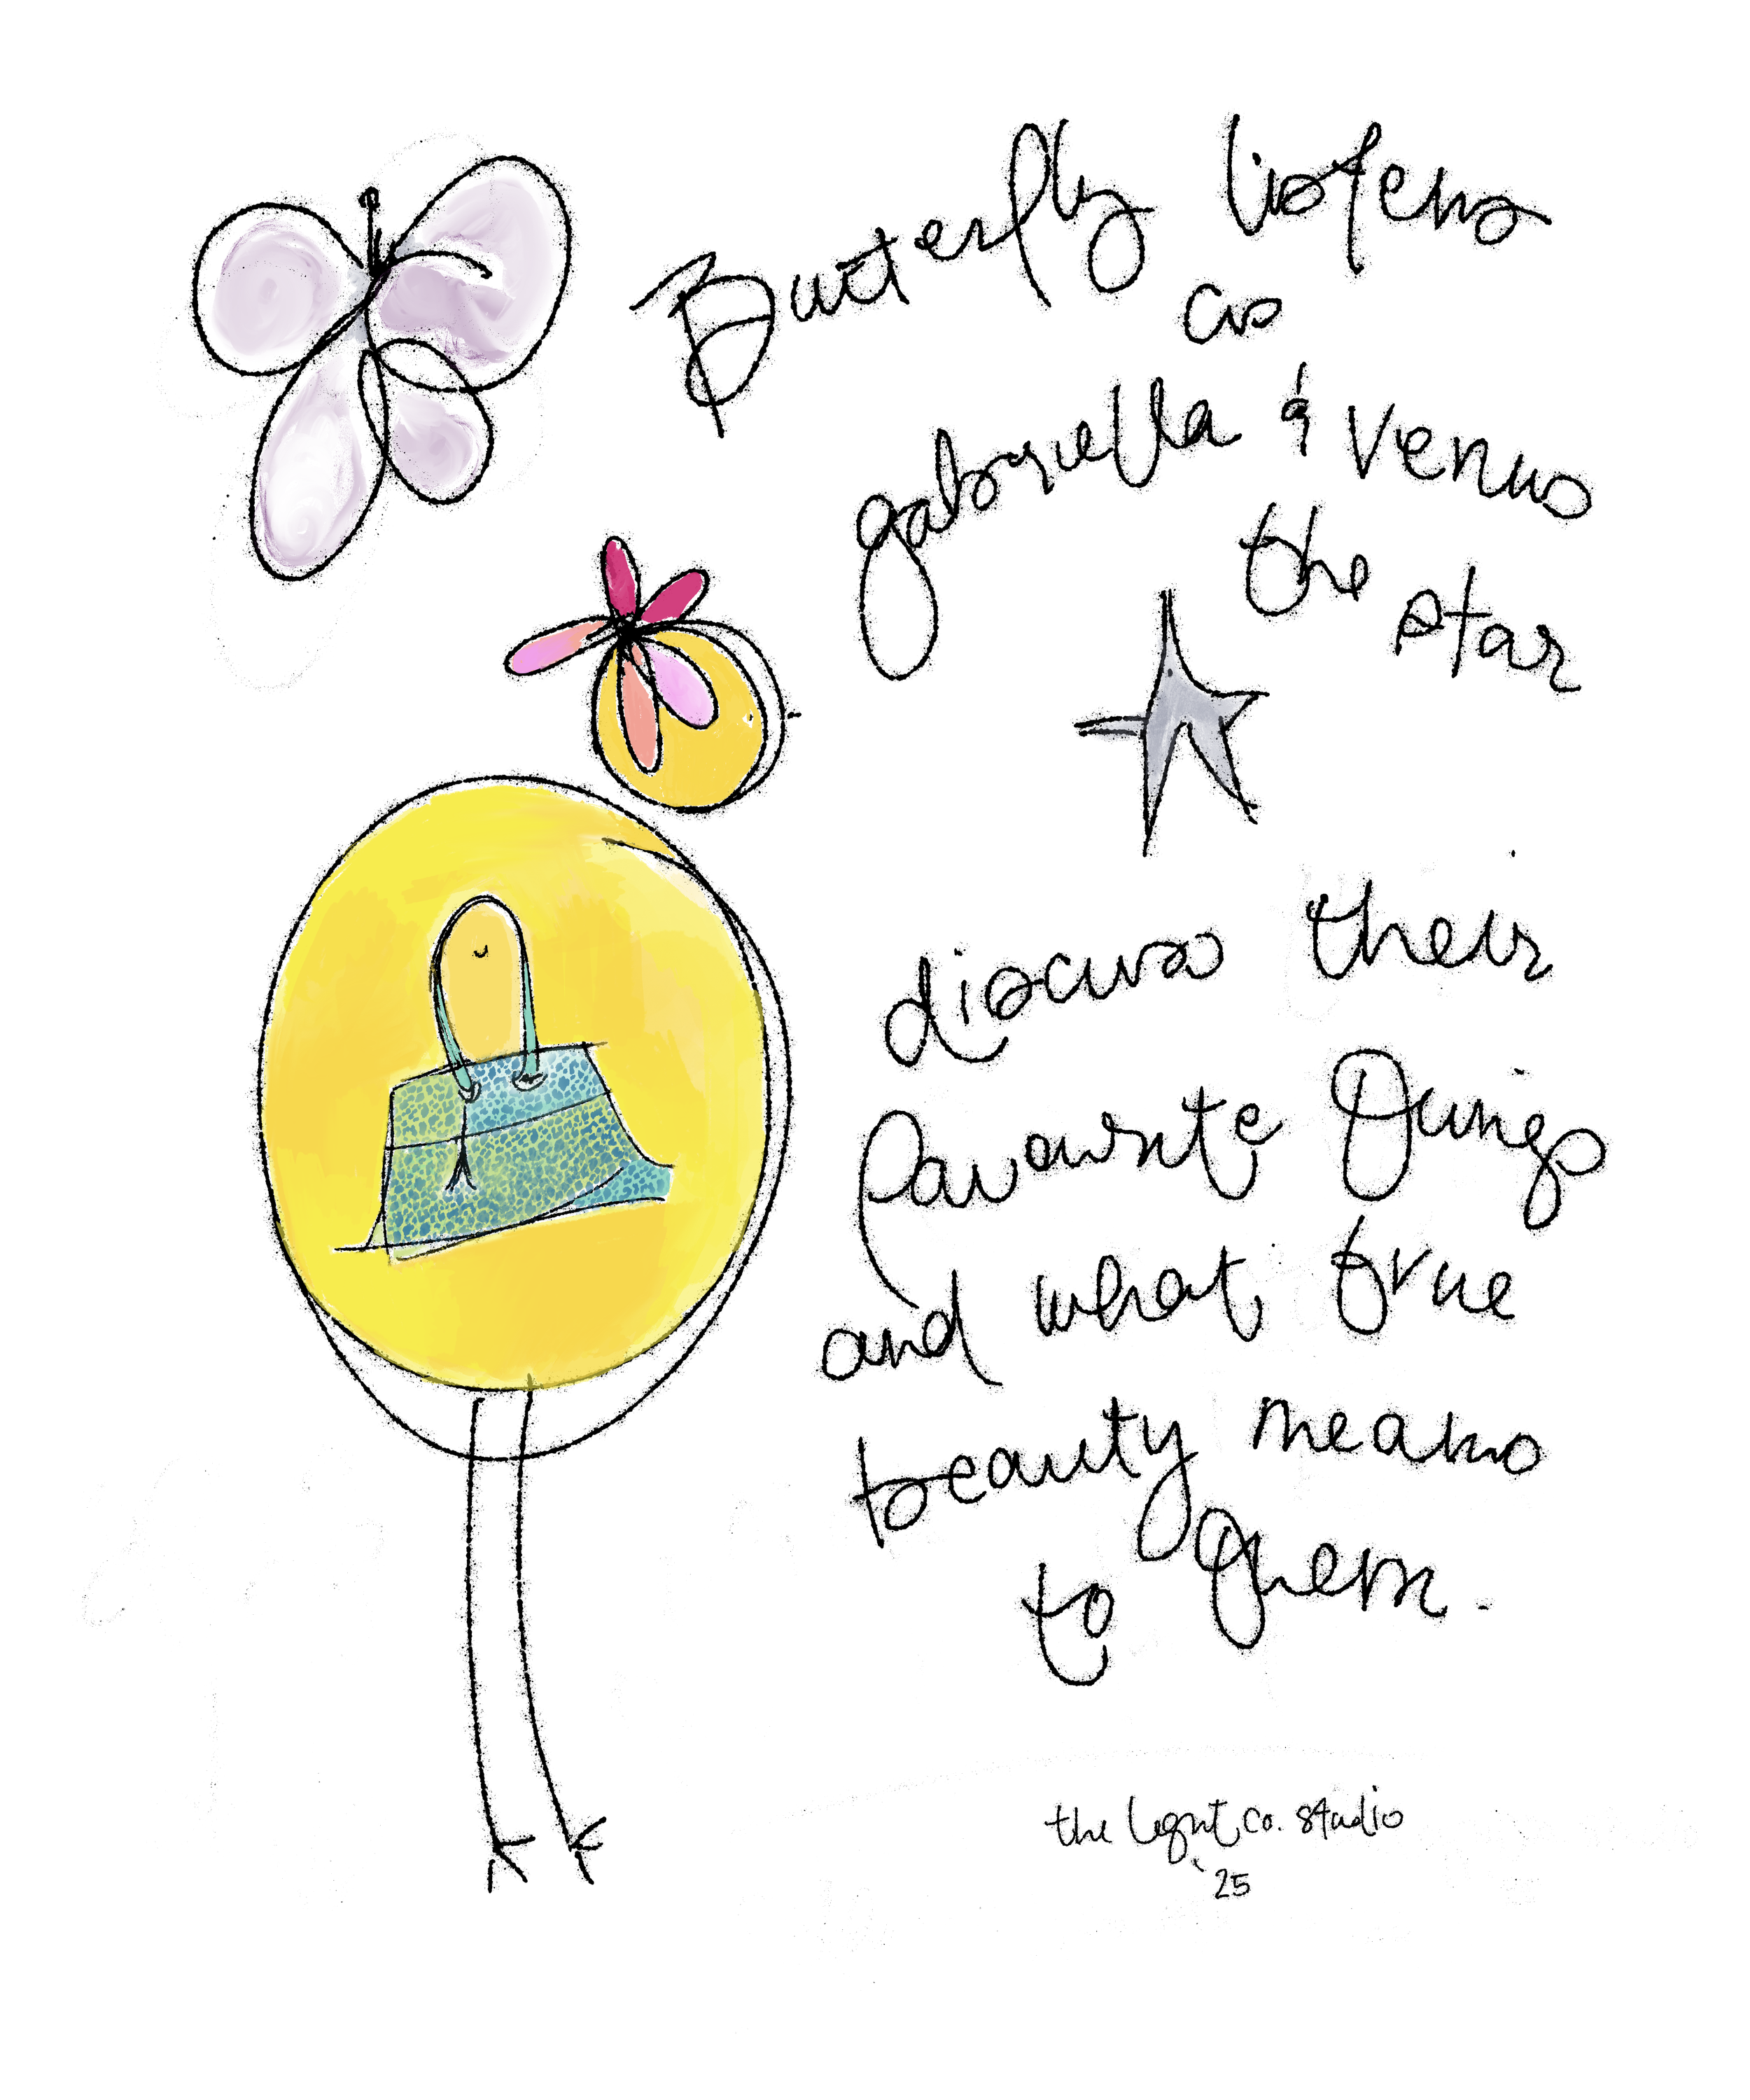 Butterfly listens
as
gabriella & Venus
the star
discuss their
favourite things
and what true
beauty means
to them.
the light co. studio
'25